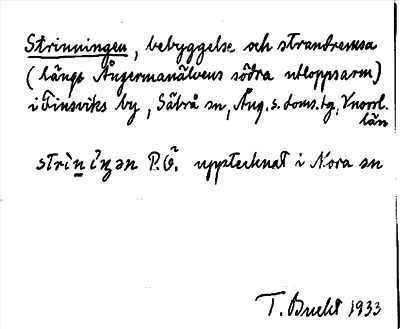 Strinningen, bebyggelse och strandremsa
(längs Ångermanälvens södra utloppsarm)
i Finsviks by, Säbrå sn, Ång. s. doms. tg, Vnorrl.
län
strìnìŋən P.Ö. upptecknat i Nora sn
T. Bucht 1933